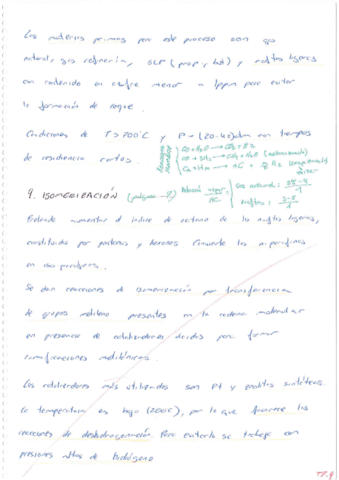 Las materias primas para este proceso son gas
natural, gas refinería, GLP (prop y but) y naftas ligeras
con contenido en azufre menor a 1ppm para evitar
la formación de coque.
Condiciones de T>700°C y P=(20-40)atm con tiempos
de residencia cortos.
CO+H2O → CO2+H2
9. ISOMERIZACIÓN
Gas natural:
Naftas:
Entiende aumentar el índice de octano de las naftas ligeras,
constituidas por pentanos y hexanos. Convierte las n-parafinas
en iso parafinas.
Se dan reacciones de isomerización por transferencias
de grupos metileno presentes en la cadena molecular
en presencia de catalizadores ácidos para formar
ramificaciones metilénicas.
Los catalizadores más utilizados son Pt y zeolitas sintéticas.
La temperatura es baja (200°C), por lo que favorece las
reacciones de deshidrogenación. Para evitarlo se trabaja con
presiones altas de hidrógeno
T7.9